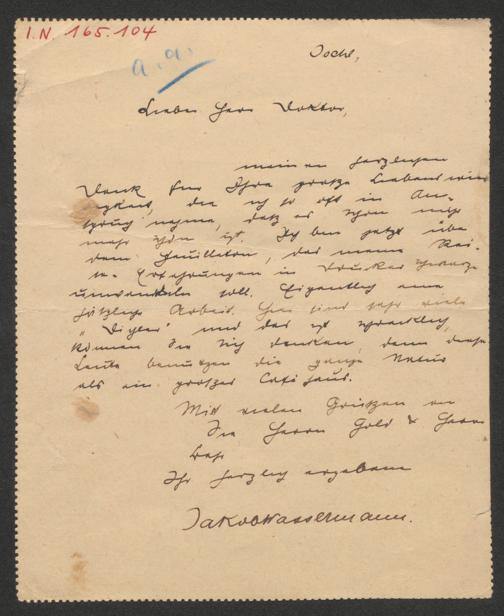 I.N. 165.104
a.a.
Ischl,
Lieber Herr Doktor,
meinen herzlichen
Dank für Ihre große Liebenswür-
digkeit, die ich so oft in An-
spruch nehme, daß es schon nicht
mehr schön ist. Ich bin jetzt über
dem Feuilleton, das meine Rei-
se-Erfahrungen in Druckerschwärze
umwandeln soll. Eigentlich eine
Arbeit. Hier sind sehr viele
"Dichter" und das ist schrecklich,
können Sie sich denken, denn diese
Leute benutzen die ganze Natur
als ein großes Caféhaus.
Mit vielen Grüßen an
Sie Herrn Gold & Herrn
Ihr herzlich ergebener
JakobWassermann.